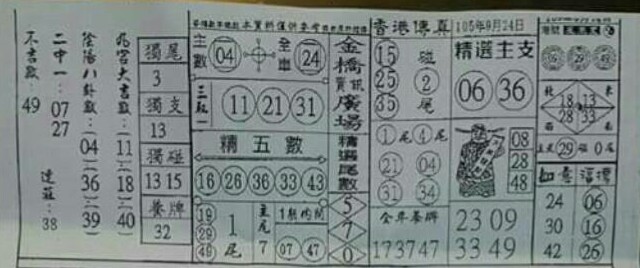 不出數：49
二中一：07
27
連莊：38
陰陽八卦數：（04）（36（39）
九宮大吉數：（11）（18（40）
獨尾
3
獨支
13
獨碰
13 15
養牌
32
主數
04
全車
24
三中一
11 21 31
精五數
16 26 36 33 43
19
29
49
1
尾
主尾
7
1期內開
07 47
金橋資訊廣場
精選尾數
5
7
0
香港傳真
15
25
35
碰
2
尾
1尾 4尾
21 04
31 34
全年養牌
173747
105年9月24日
精選主支
06 36
08
28
48
23 09
33 49
09 29 49
18 13
28 33
主支29碰0尾
24 06
30 16
42 26